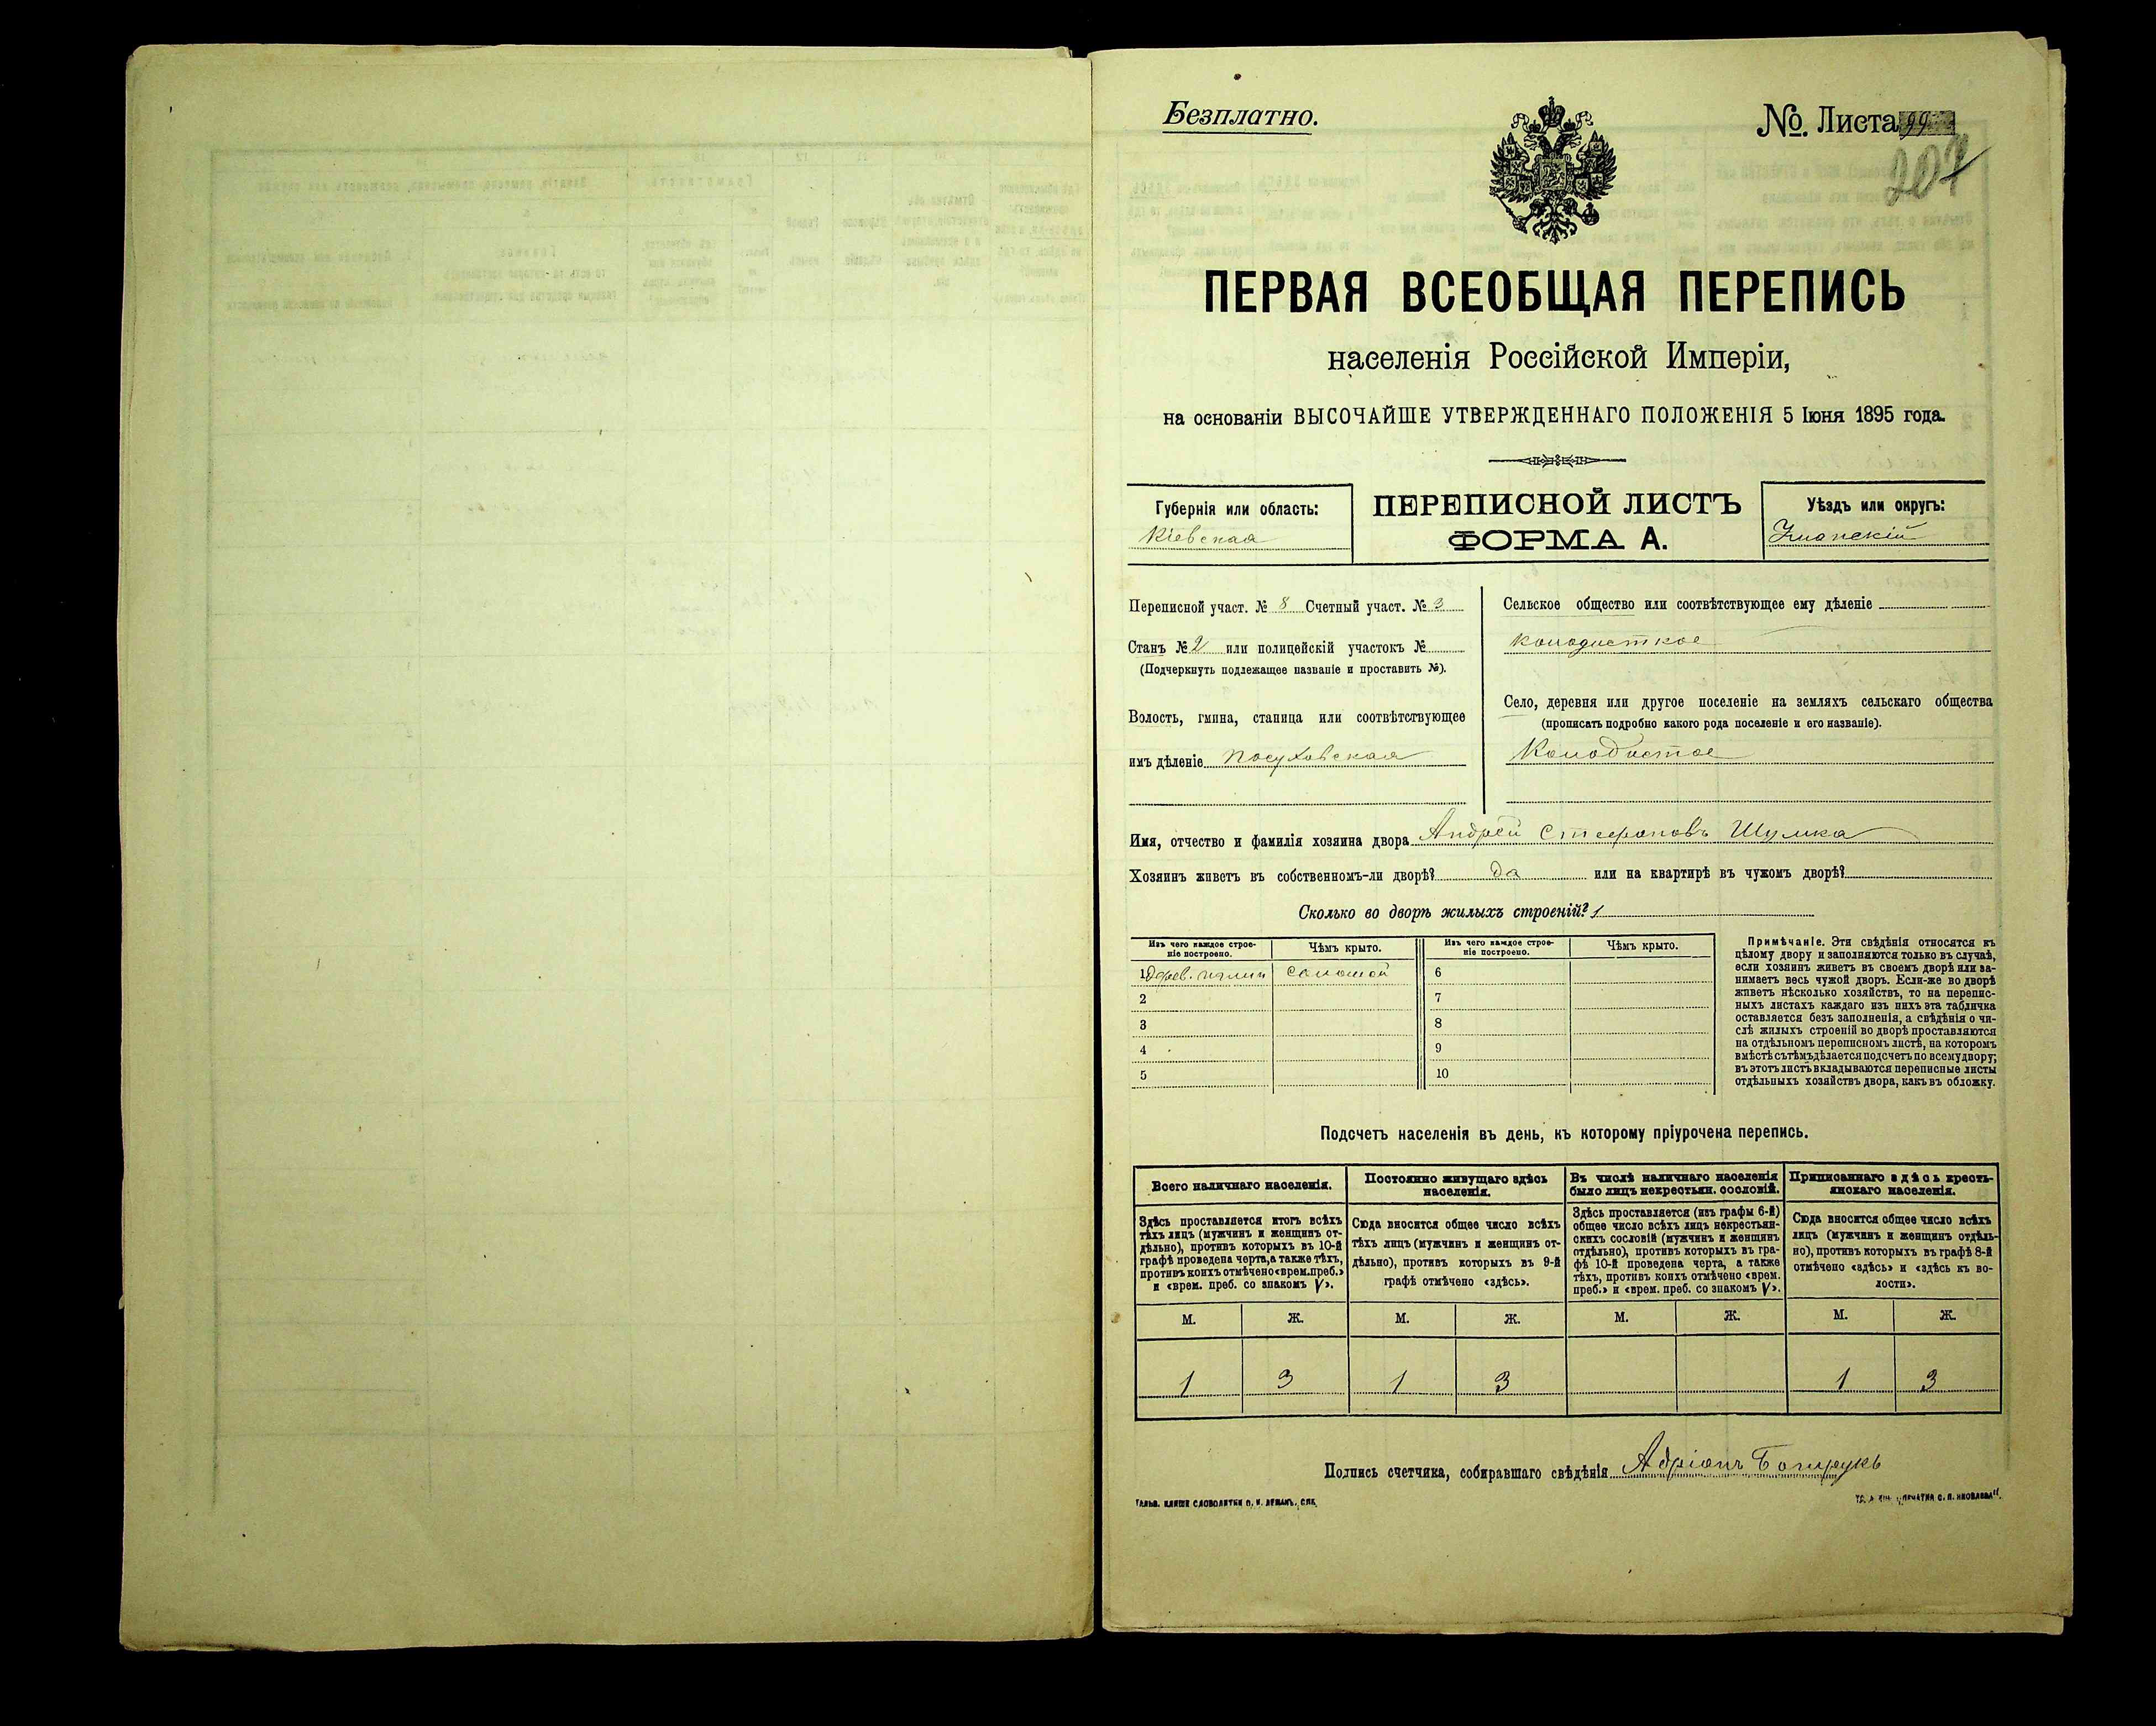 Безплатно.
№. Листа 99
207
ПЕРВАЯ ВСЕОБЩАЯ ПЕРЕПИСЬ
населенія Россійской Имперіи,
на основаніи ВЫСОЧАЙШЕ УТВЕРЖДЕННАГО ПОЛОЖЕНІЯ 5 Іюня 1895 года.
Губернія или область:
Кіевская
ПЕРЕПИСНОЙ ЛИСТЪ
ФОРМА А.
Уѣздъ или округъ:
Уманскій
Переписной участ. № 8 Счетный участ. № 3
Станъ № 2 или полицейскій участокъ №
(Подчеркнуть подлежащее названіе и проставить №).
Волость, гмина, станица или соотвѣтствующее
имъ дѣленіе Посуховская
Сельское общество или соотвѣтствующее ему дѣленіе
Колодисткое
Село, деревня или другое поселеніе на земляхъ сельскаго общества
(прописать подробно какого рода поселеніе и его названіе).
Колодистое
Имя, отчество и фамилія хозяина двора Андрей Стефановъ Шулка
Хозяинъ живетъ въ собственномъ-ли дворѣ? да или на квартирѣ въ чужомъ дворѣ?
Сколько во дворѣ жилыхъ строеній? 1
Изъ чего каждое строе-
ніе построено.
Чѣмъ крыто.
Изъ чего каждое строе-
ніе построено.
Чѣмъ крыто.
1 дерев. соломой 6
2 7
3 8
4 9
5 10
Примѣчаніе. Эти свѣдѣнія относятся къ
цѣлому двору и заполняются только въ случаѣ,
если хозяинъ живетъ въ своемъ дворѣ или за-
нимаетъ весь чужой дворъ. Если-же во дворѣ
живетъ нѣсколько хозяйствъ, то на перепис-
ныхъ листахъ каждаго изъ нихъ эта табличка
оставляется безъ заполненія, а свѣдѣнія о чи-
слѣ жилыхъ строеній во дворѣ проставляются
на отдѣльномъ переписномъ листѣ, на которомъ
вмѣстѣ съ тѣмъ дѣлается подсчетъ по всему двору;
въ этотъ листъ вкладываются переписные листы
отдѣльныхъ хозяйствъ двора, какъ въ обложку.
Подсчетъ населенія въ день, къ которому пріурочена перепись.
Всего наличнаго населенія.
Здѣсь проставляется итогъ всѣхъ
тѣхъ лицъ (мужчинъ и женщинъ от-
дѣльно), противъ которыхъ въ 10-й
графѣ проведена черта, а также тѣхъ,
противъ коихъ отмѣчено «врем. преб.»
и «врем. преб. со знакомъ V».
Постоянно живущаго здѣсь
населенія.
Сюда вносится общее число всѣхъ
тѣхъ лицъ (мужчинъ и женщинъ от-
дѣльно), противъ которыхъ въ 9-й
графѣ отмѣчено «здѣсь».
Въ числѣ наличнаго населенія
было лицъ некрестьян. сословій.
Здѣсь проставляется (изъ графы 6-й)
общее число всѣхъ лицъ некрестьян-
скихъ сословій (мужчинъ и женщинъ
отдѣльно), противъ которыхъ въ гра-
фѣ 10-й проведена черта, а также
тѣхъ, противъ коихъ отмѣчено «врем.
преб.» и «врем. преб. со знакомъ V».
Приписаннаго здѣсь кресть-
янскаго населенія.
Сюда вносится общее число всѣхъ
лицъ (мужчинъ и женщинъ отдѣль-
но), противъ которыхъ въ графѣ 8-й
отмѣчено «здѣсь» и «здѣсь къ во-
лости».
М. Ж. М. Ж. М. Ж. М. Ж.
1 3 1 3 1 3
Подпись счетчика, собиравшаго свѣдѣнія Адріанъ
ГАЛЬВ. КЛИШЕ СЛОВОЛИТНИ О. И. ЛЕМАНЪ, СПБ.
С. П. ЯКОВЛЕВА".